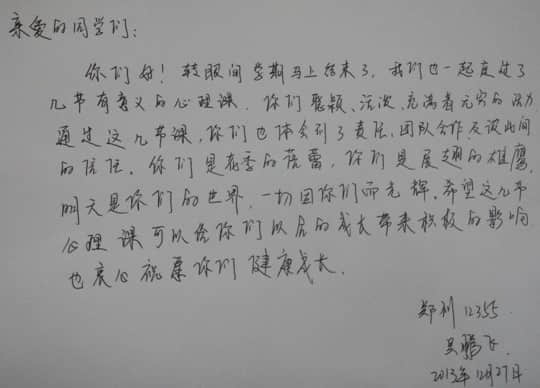 亲爱的同学们:
你们好！转眼间学期马上结束了，我们也一起度过了
几节有意义的心理课，你们聪颖、活泼、充满着无穷的活力
通过这几节课，你们也体会到了责任，团队合作及彼此间
的信任。你们是花季的蓓蕾，你们是展翅的雄鹰，
明天是你们的世界，一切因你们而光辉。希望这几节
心理课可以给你们以后的成长带来积极的影响
也衷心祝愿你们健康成长。
郑州12355
吴鹏飞
2013年12月27日